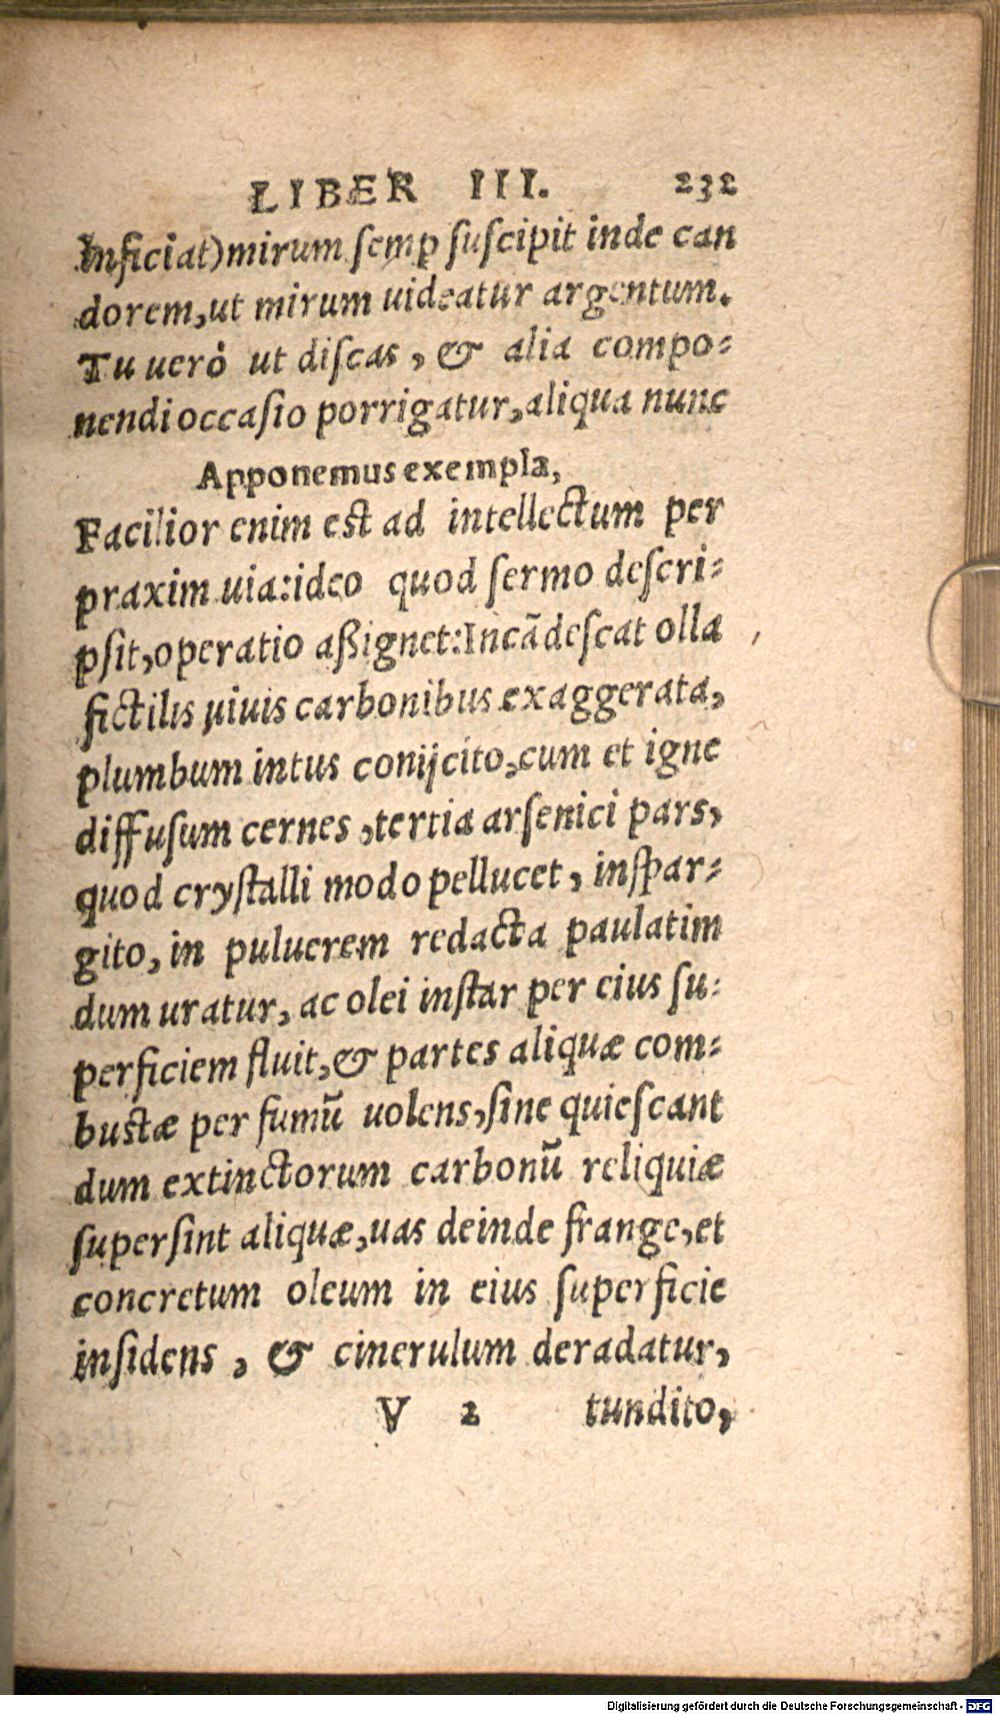 LIBER III. 232
inficiat) mirum semꝑ suscipit inde can
dorem, ut mirum uideatur argentum.
Tu uerò ut discas, & alia compo-
nendi occasio porrigatur, aliqua nunc
Apponemus exempla,
Facilior enim est ad intellectum per
praxim uia: ideo quod sermo descri-
psit, operatio aßignet: Incãdescat olla
fictilis uiuis carbonibus exaggerata,
plumbum intus conijcito, cum et igne
diffusum cernes, tertia arsenici pars,
quod crystalli modo pellucet, inspar-
gito, in puluerem redacta paulatim
dum uratur, ac olei instar per eius su-
perficiem fluit, & partes aliquæ com-
bustæ per fumũ uolens, sine quiescant
dum extinctorum carbonũ reliquiæ
supersint aliquæ, uas deinde frange, et
concretum oleum in eius superficie
insidens, & cinerulum deradatur,
V 2 tundito,
Digitalisierung gefördert durch die Deutsche Forschungsgemeinschaft - DFG